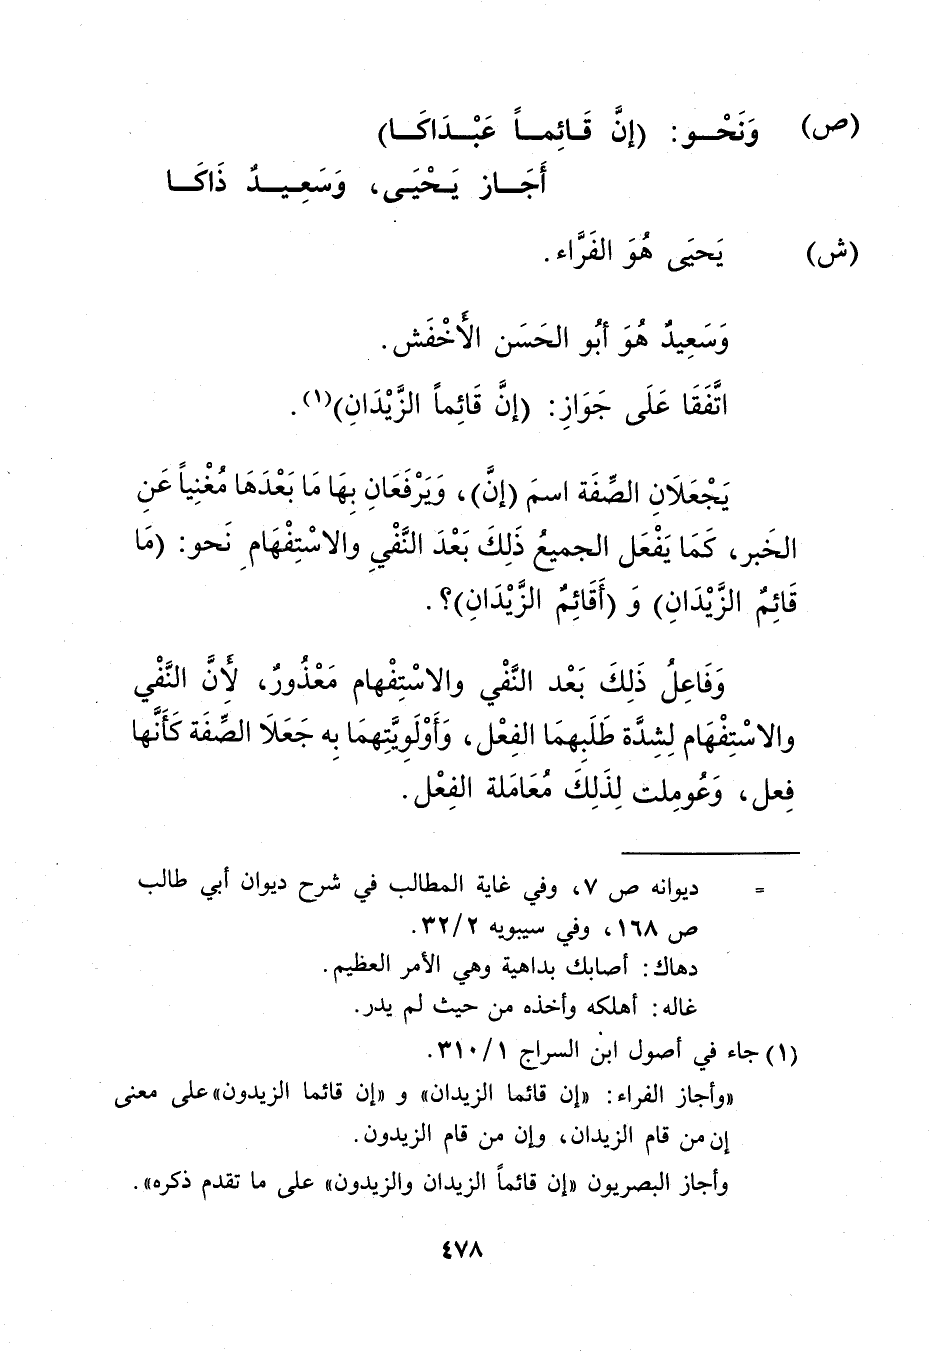 (ص) وَنَحْـــو: (إنَّ قَـائِمـاً عَبْـدَاكَـا)
أَجَـــاز يَـحْيَـى، وَسَعِـيـدٌ ذَاكَـا
(ش) يَحيَى هُوَ الفَرَّاء.
وَسَعِيدٌ هُوَ أبُو الحَسَن الأَخْفَش.
اتَّفَقَا عَلَى جَوَازِ: (إنَّ قَائِماً الزَّيْدَانِ)(١).
يَجْعَلَانِ الصِّفَة اسمَ (إنَّ)، وَيَرْفَعَانِ بِهَا مَا بَعْدَهَا مُغْنِياً عَنِ
الخَبر، كَمَا يَفْعَل الجميعُ ذَلِكَ بَعْدَ النَّفْيِ والاسْتِفْهَامِ نَحو: (مَا
قَائِمٌ الزَّيْدَانِ) وَ (أَقَائِمٌ الزَّيْدَانِ)؟.
وَفَاعِلُ ذَلِكَ بَعْد النَّفْي والاسْتِفْهام مَعْذُورٌ، لأَنَّ النَّفْي
والاسْتِفْهَام لِشدَّة طَلَبِهمَا الفِعْل، وَأَوْلَوِيَّتِهمَا بِه جَعَلَا الصِّفَة كَأَنَّها
فِعل، وَعُومِلت لِذَلِكَ مُعَامَلة الفِعْل.
= ديوانه ص ٧، وفي غاية المطالب في شرح ديوان أبي طالب
ص ١٦٨، وفي سيبويه ٣٢/٢.
دهاك: أصابك بداهية وهي الأمر العظيم.
غاله: أهلكه وأخذه من حيث لم يدر.
(١) جاء في أصول ابن السراج ٣١٠/١.
«وأجاز الفراء: «إن قائما الزيدان» و «إن قائما الزيدون» على معنى
إن من قام الزيدان، وإن من قام الزيدون.
وأجاز البصريون «إن قائماً الزيدان والزيدون» على ما تقدم ذكره».
٤٧٨